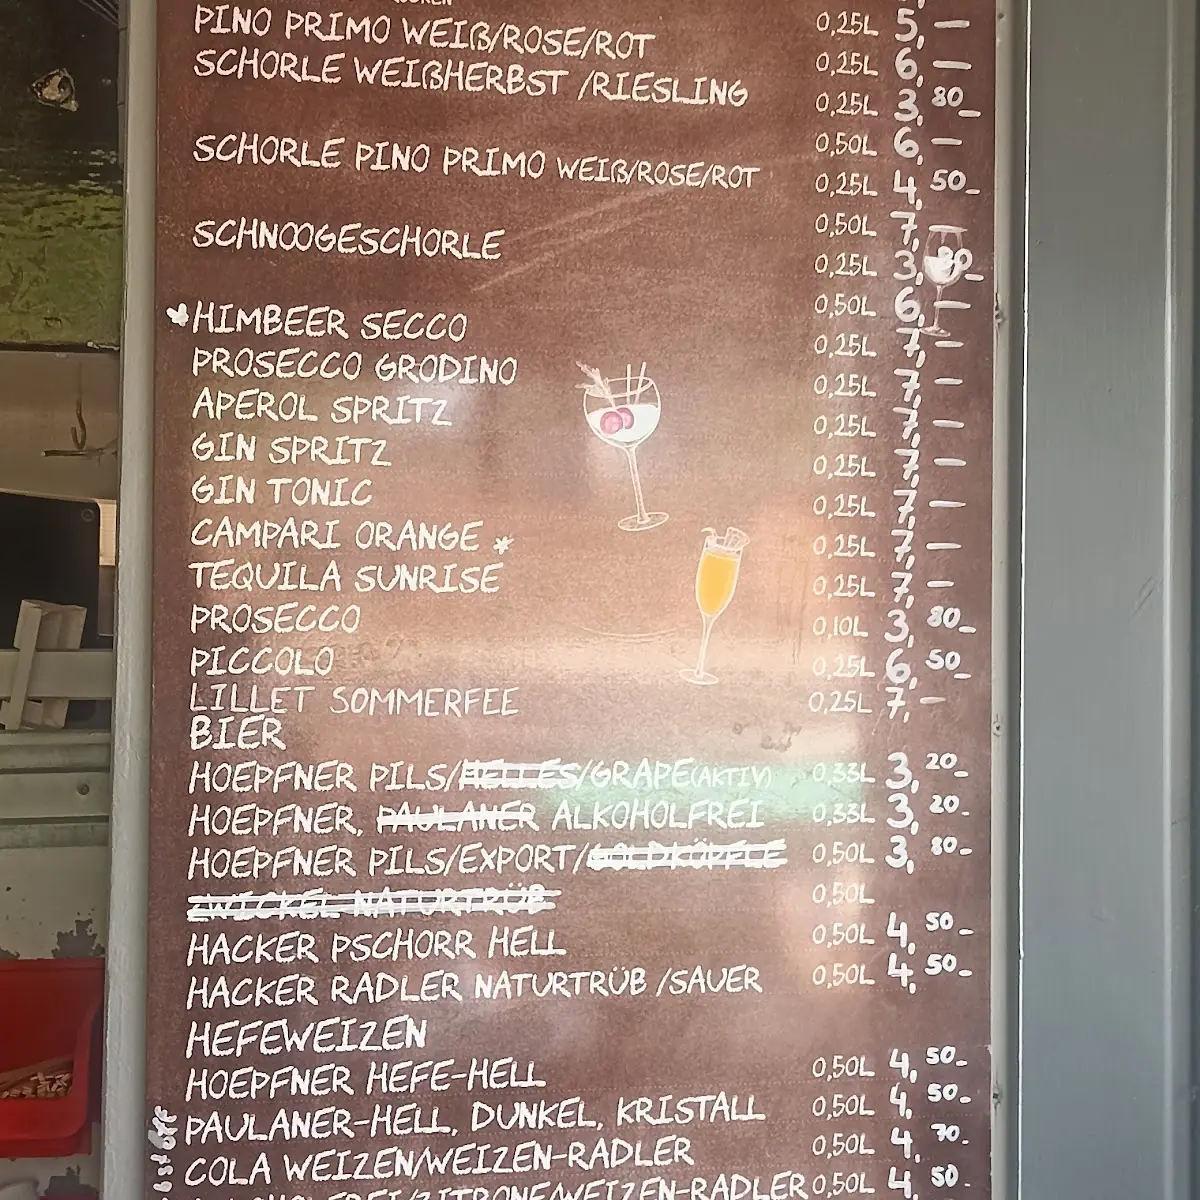 PINO PRIMO WEIß/ROSE/ROT 0,25L 5,—
SCHORLE WEIßHERBST /RIESLING 0,25L 6,—
0,25L 3,80
SCHORLE PINO PRIMO WEIß/ROSE/ROT 0,50L 6,—
0,25L 4,50
SCHNOOGESCHORLE 0,50L 7,—
0,25L 3,80
HIMBEER SECCO 0,50L 6,—
PROSECCO GRODINO 0,25L 7,—
APEROL SPRITZ 0,25L 7,—
GIN SPRITZ 0,25L 7,—
GIN TONIC 0,25L 7,—
CAMPARI ORANGE * 0,25L 7,—
TEQUILA SUNRISE 0,25L 7,—
0,25L 7,—
PROSECCO 0,10L 3,80
PICCOLO 0,25L 6,50
LILLET SOMMERFEE 0,25L 7,—
BIER
HOEPFNER PILS/HELLES/GRAPE(AKTIV) 0,33L 3,20
HOEPFNER, PAULANER ALKOHOLFREI 0,33L 3,20
HOEPFNER PILS/EXPORT/GOLDKÖPFLE 0,50L 3,80
ZWICKEL NATURTRÜB 0,50L
HACKER PSCHORR HELL 0,50L 4,50
HACKER RADLER NATURTRÜB /SAUER 0,50L 4,50
HEFEWEIZEN
HOEPFNER HEFE-HELL 0,50L 4,50
PAULANER-HELL, DUNKEL, KRISTALL 0,50L 4,50
COLA WEIZEN/WEIZEN-RADLER 0,50L 4,70
/ZITRONE/WEIZEN-RADLER 0,50L 4,50